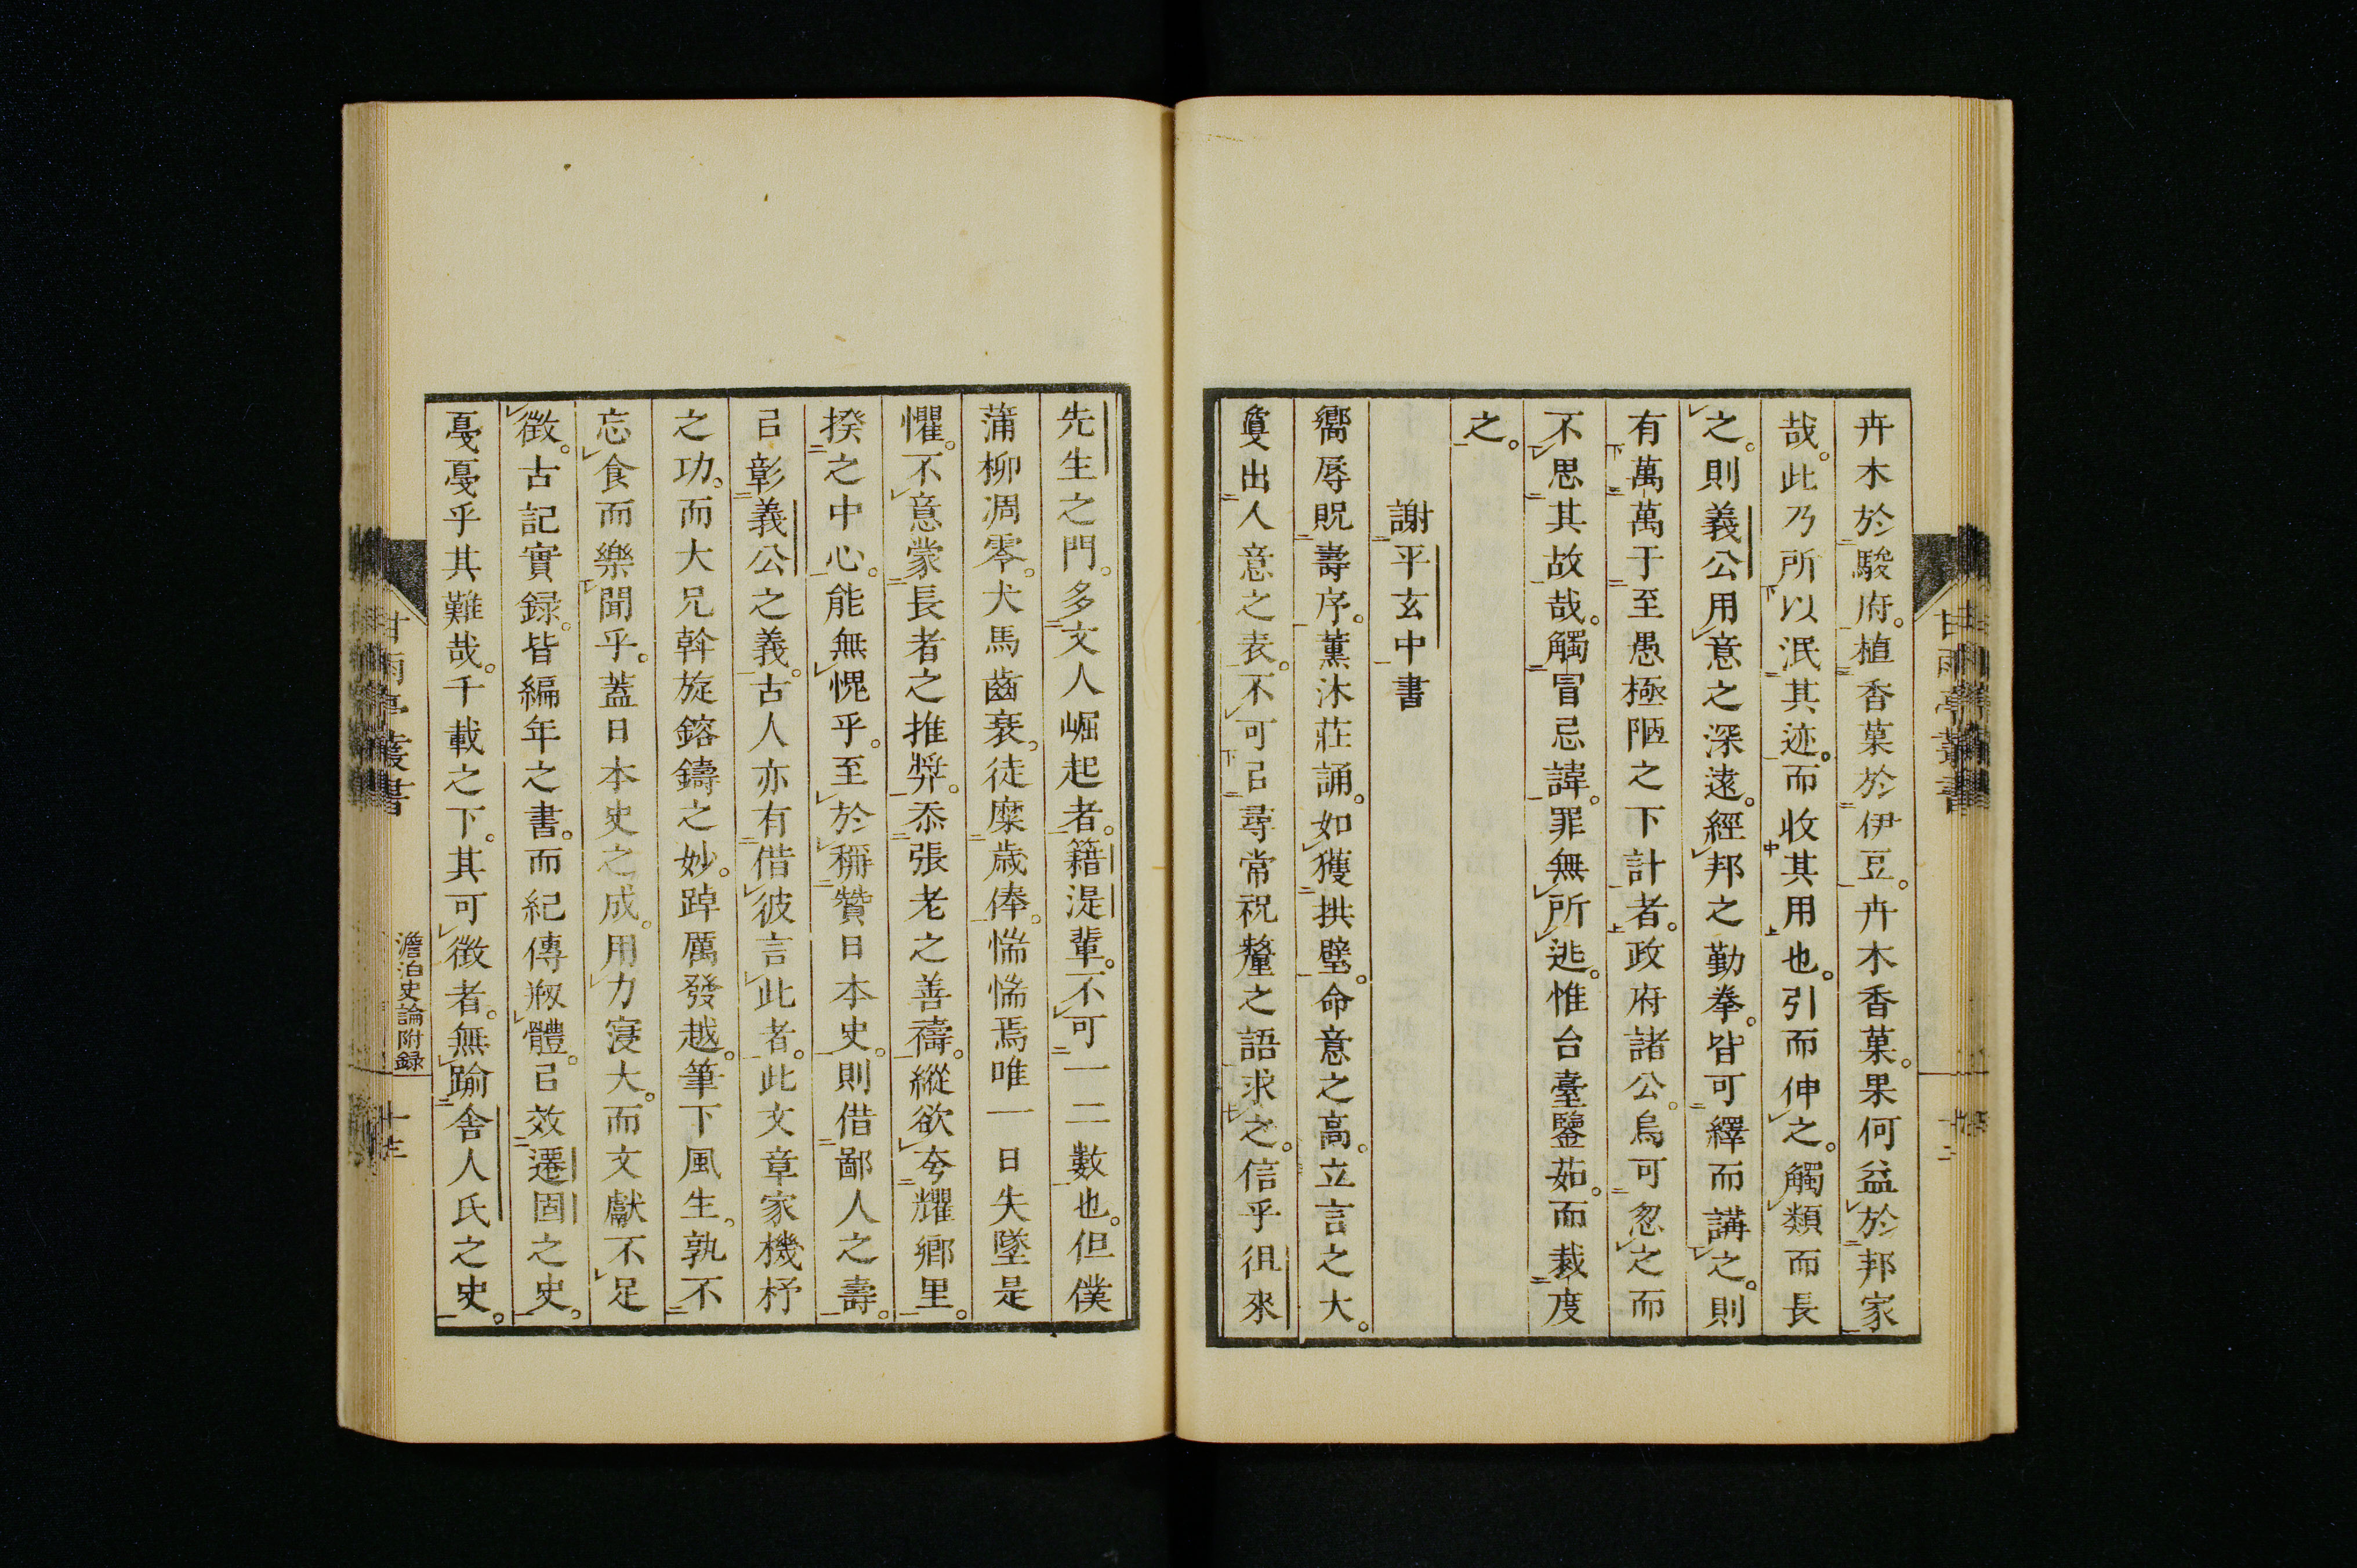 卉木於駿府。植香菓於伊豆。卉木香菓。果何益於邦家
哉。此乃所以泯其迹。而收其用也。引而伸之。觸類而長
之。則義公用意之深遠。經邦之勤拳。皆可繹而講之。則
有萬萬于至愚極陋之下計者。政府諸公。烏可忽之而
不思其故哉。觸冒忌諱。罪無所逃。惟台臺鑒茹。而裁度
之。
謝平玄中書
嚮辱貺壽序。薰沐莊誦。如獲拱璧。命意之高。立言之大。
敻出人意之表。不可㠯尋常祝釐之語求之。信乎徂來
先生之門。多文人崛起者。籍湜輩。不可一二數也。但僕
蒲柳凋零。犬馬齒衰。徒糜歳俸。惴惴焉唯一日失墜是
懼。不意蒙長者之推奬。忝張老之善禱。縱欲夸耀鄉里。
揆之中心。能無愧乎。至於稱贊日本史。則借鄙人之壽。
㠯彰義公之義。古人亦有借彼言此者。此文章家機杼
之功。而大兄斡旋鎔鑄之妙。踔厲發越。筆下風生。孰不
忘食而樂聞乎。蓋日本史之成。用力寖大。而文獻不足
徵。古記實録。皆編年之書。而紀傳剏體。㠯效遷固之史。
戞戞乎其難哉。千載之下。其可徵者。無踰舍人氏之史。
甘雨亭叢書
澹泊史論附録